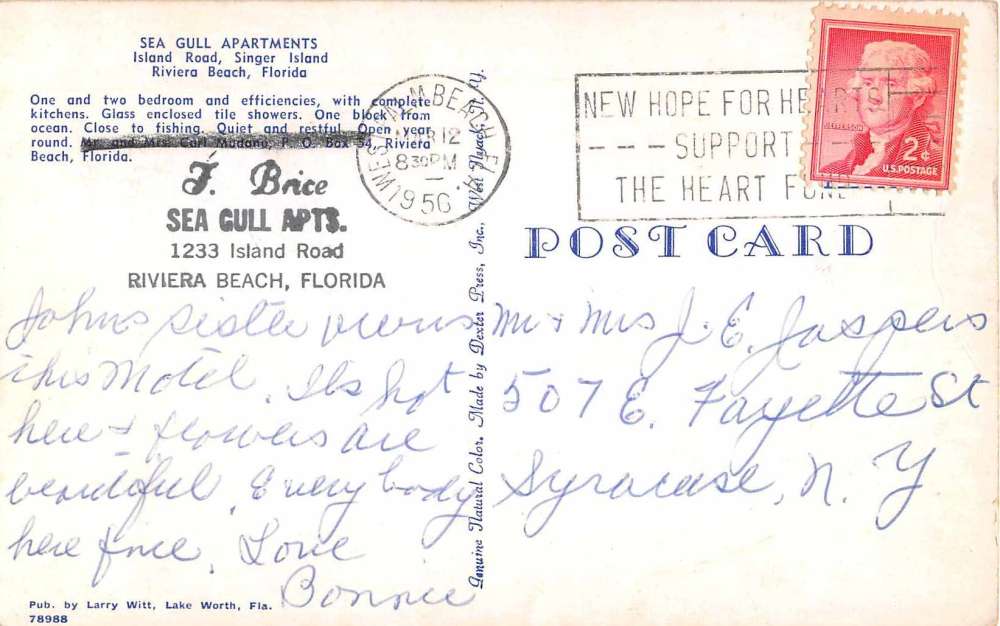 SEA GULL APARTMENTS
Island Road, Singer Island
Riviera Beach, Florida
One and two bedroom and efficiencies, with complete
kitchens. Glass enclosed tile showers. One block from
ocean. Close to fishing. Quiet and restful. Open year
round. Mr. and Mrs. Carl Madano, P. O. Box 54, Riviera
Beach, Florida.
F. Brice
SEA GULL APTS.
1233 Island Road
RIVIERA BEACH, FLORIDA
Johns sister owns
this Motel. Its hot
here & flowers are
beautiful. Every body
here fine. Love
Bonnie
Pub. by Larry Witt, Lake Worth, Fla.
78988
Genuine Natural Color. Made by Dexter Press, Inc., West Nyack, N. Y.
WEST PALM BEACH FLA.
12
8 30 PM
1956
NEW HOPE FOR HEARTS
SUPPORT
THE HEART FUND
JEFFERSON
2¢
U.S. POSTAGE
POST CARD
Mr & Mrs J. E. Jaspers
507 E. Fayette St
Syracuse, N. Y